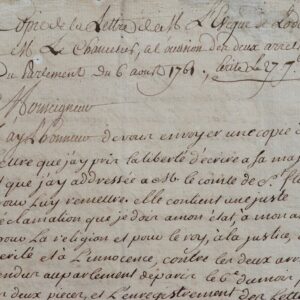 Copie de la Lettre de M. L'Evêque de Lod
M. Le Chancelier, a l'occasion des deux arret
Du Parlement du 6 aoust 1761. , Ecrite Le 27 7
Monseigneur
J'ay L'honneur de vous envoyer une copie d
que j'ay pris la liberté d'ecrire a sa maj
que j'ay addressée a Mr le comte de St fl
pour Luy remettre. elle contient une juste
reclamation que je dois a mon etat, a mon a
pour La religion et pour le roy, a la justice, a
verité et a L'innocence, contre les deux arre
rendus au parlement de paris le 6e du mo
deux pieces, et L'enregistrement des Let